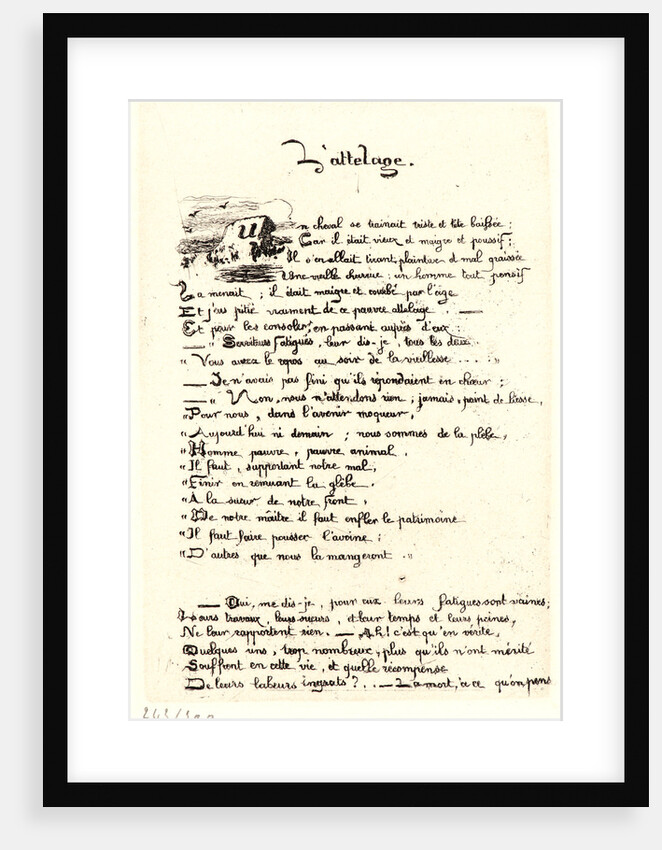 L'attelage.
Un cheval se trainait triste et tête baissée :
Car il était vieux et maigre et poussif ;
Il s'en allait tirant, plaintive et mal graissée
Une vieille charrue : un homme tout pensif
La menait ; il était maigre et courbé par l'âge
Et j'eus pitié vraiment de ce pauvre attelage . . —
Et pour les consoler, en passant auprès d'eux :
— " Serviteurs fatigués, leur dis-je, tous les deux
" Vous aurez le repos au soir de la vieillesse . . . : "
— Je n'avais pas fini qu'ils répondaient en chœur ;
— " Non, nous n'attendons rien ; jamais, point de liesse,
" Pour nous, dans l'avenir moqueur,
" Aujourd'hui ni demain ; nous sommes de la plèbe,
" Homme pauvre, pauvre animal .
" Il faut, supportant notre mal,
" Finir en remuant la glèbe .
" A la sueur de notre front,
" De notre maître il faut enfler le patrimoine
" Il faut faire pousser l'avoine ;
" D'autres que nous la mangeront . "
— Oui, me dis-je, pour eux leurs fatigues sont vaines ;
Leurs travaux, leurs sueurs, et leur temps et leurs peines,
Ne leur rapportent rien. — Ah! c'est qu'en vérité,
Quelques uns, trop nombreux, plus qu'ils n'ont mérité
Souffrent en cette vie, et quelle récompense
De leurs labeurs ingrats ? . . — La mort, à ce qu'on pens